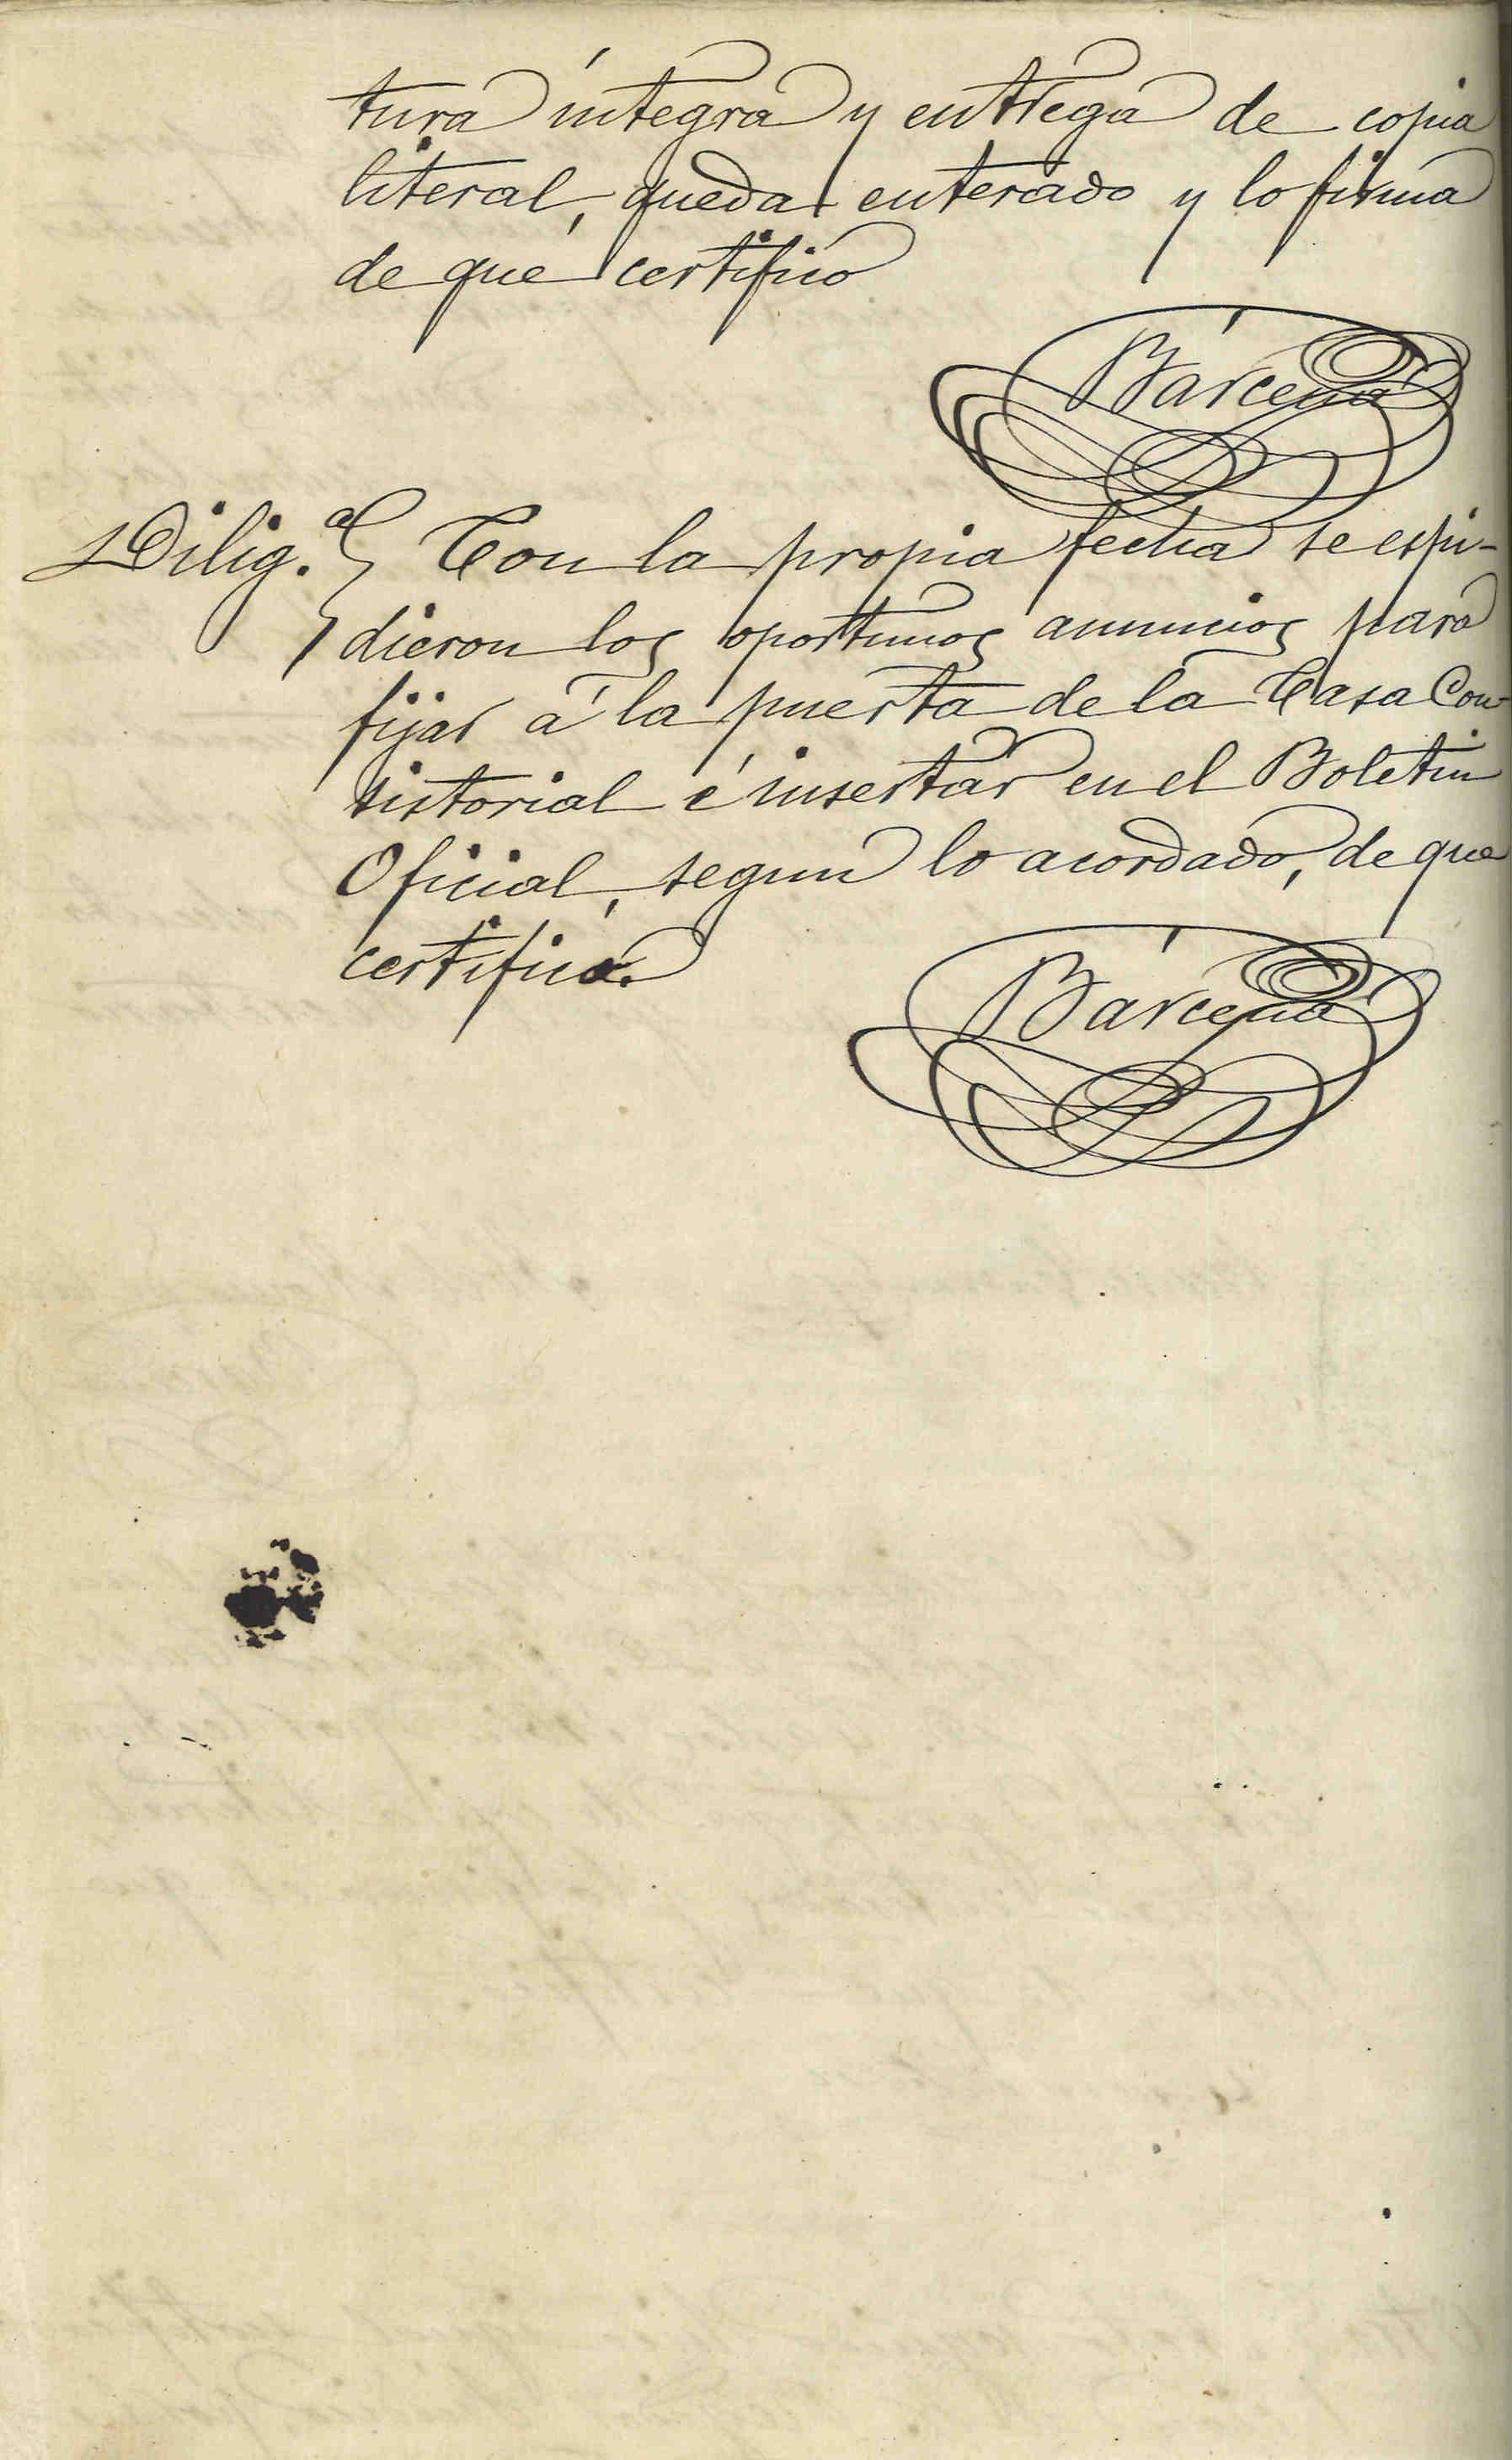 tura íntegra y entrega de copia
literal, queda enterado y lo firma
de que certifico
Bárcena
Dilig.ª Con la propia fecha se espi-
dieron los oportunos anuncios para
fijar á la puerta de la Casa Con-
sistorial é insertar en el Boletin
Oficial, segun lo acordado, de que
certifico.
Bárcena